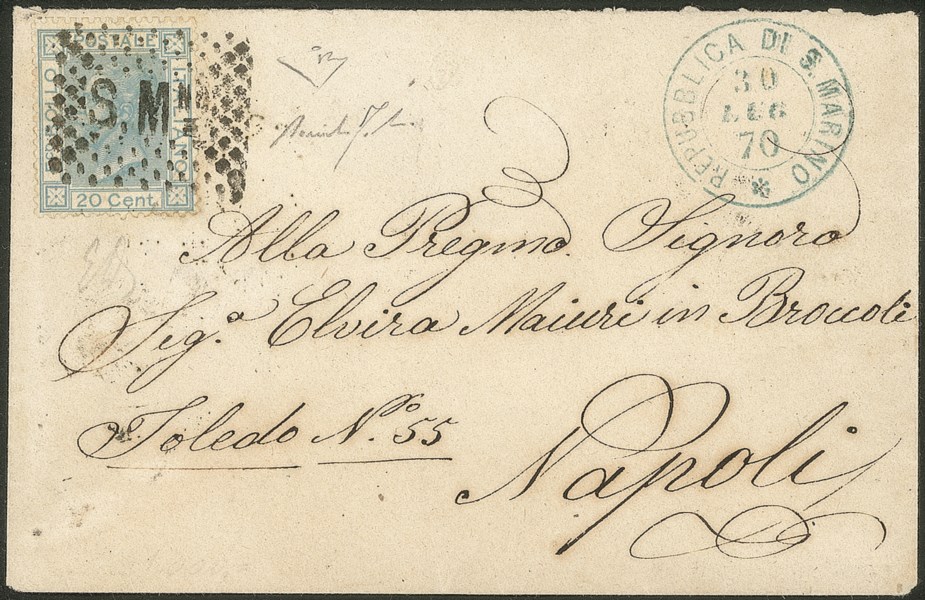 BOLLO POSTALE ITALIANO
S. MNO
20 Cent.
REPUBBLICA DI S. MARINO
30
LUG
70
Alla Pregma. Signora
Sig.a Elvira Maiuri in Broccoli
Toledo N.o 55
Napoli